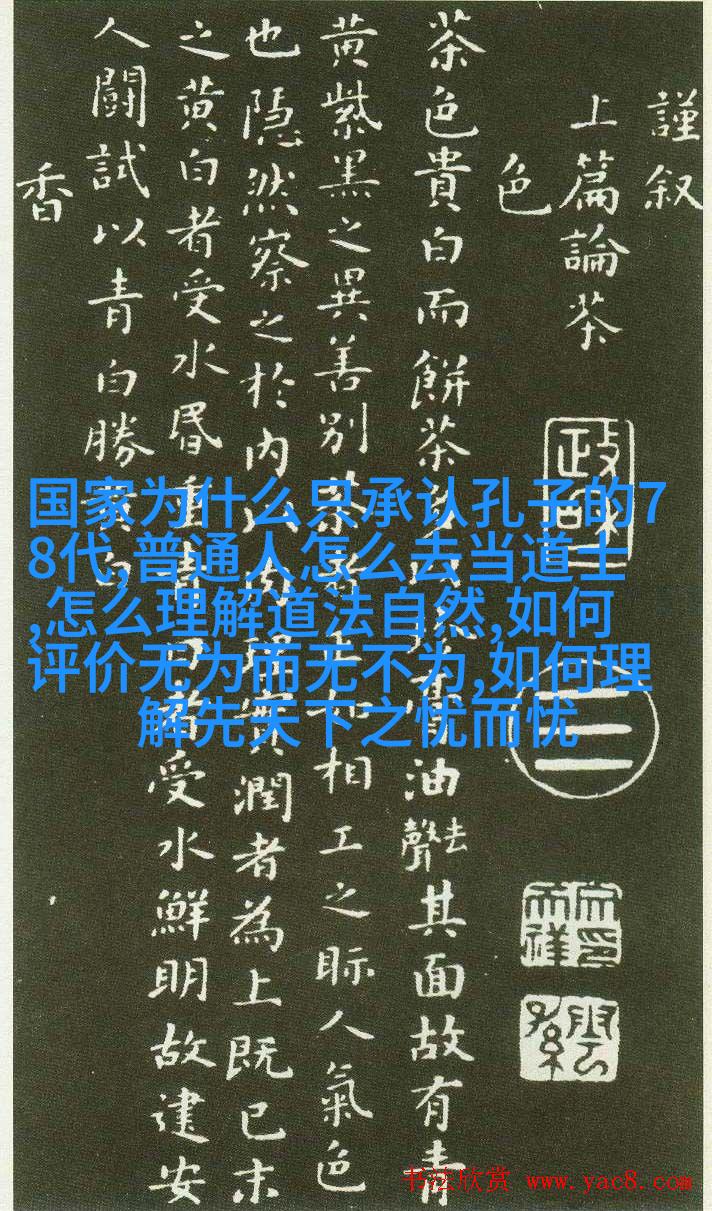 謹叙
上篇論茶
色
茶色貴白而餅茶膏油去聲其面故有青
黄紫黒之異善别茶者正如相工之眎人氣色
也隠然察之於内以肉理實潤者為上既已末
之黄白者受水昬重青白者受水鮮明故建安
人鬭試以青白勝黄白
香
国家为什么只承认孔子的7
8代,普通人怎么去当道士
,怎么理解道法自然,如何
评价无为而无不为,如何理
解先天下之忧而忧
书法欣赏 www.yac8.com